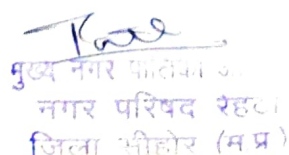 मुख्य नगर पालिका
नगर परिषद रेहटी
जिला सीहोर (म.प्र.)